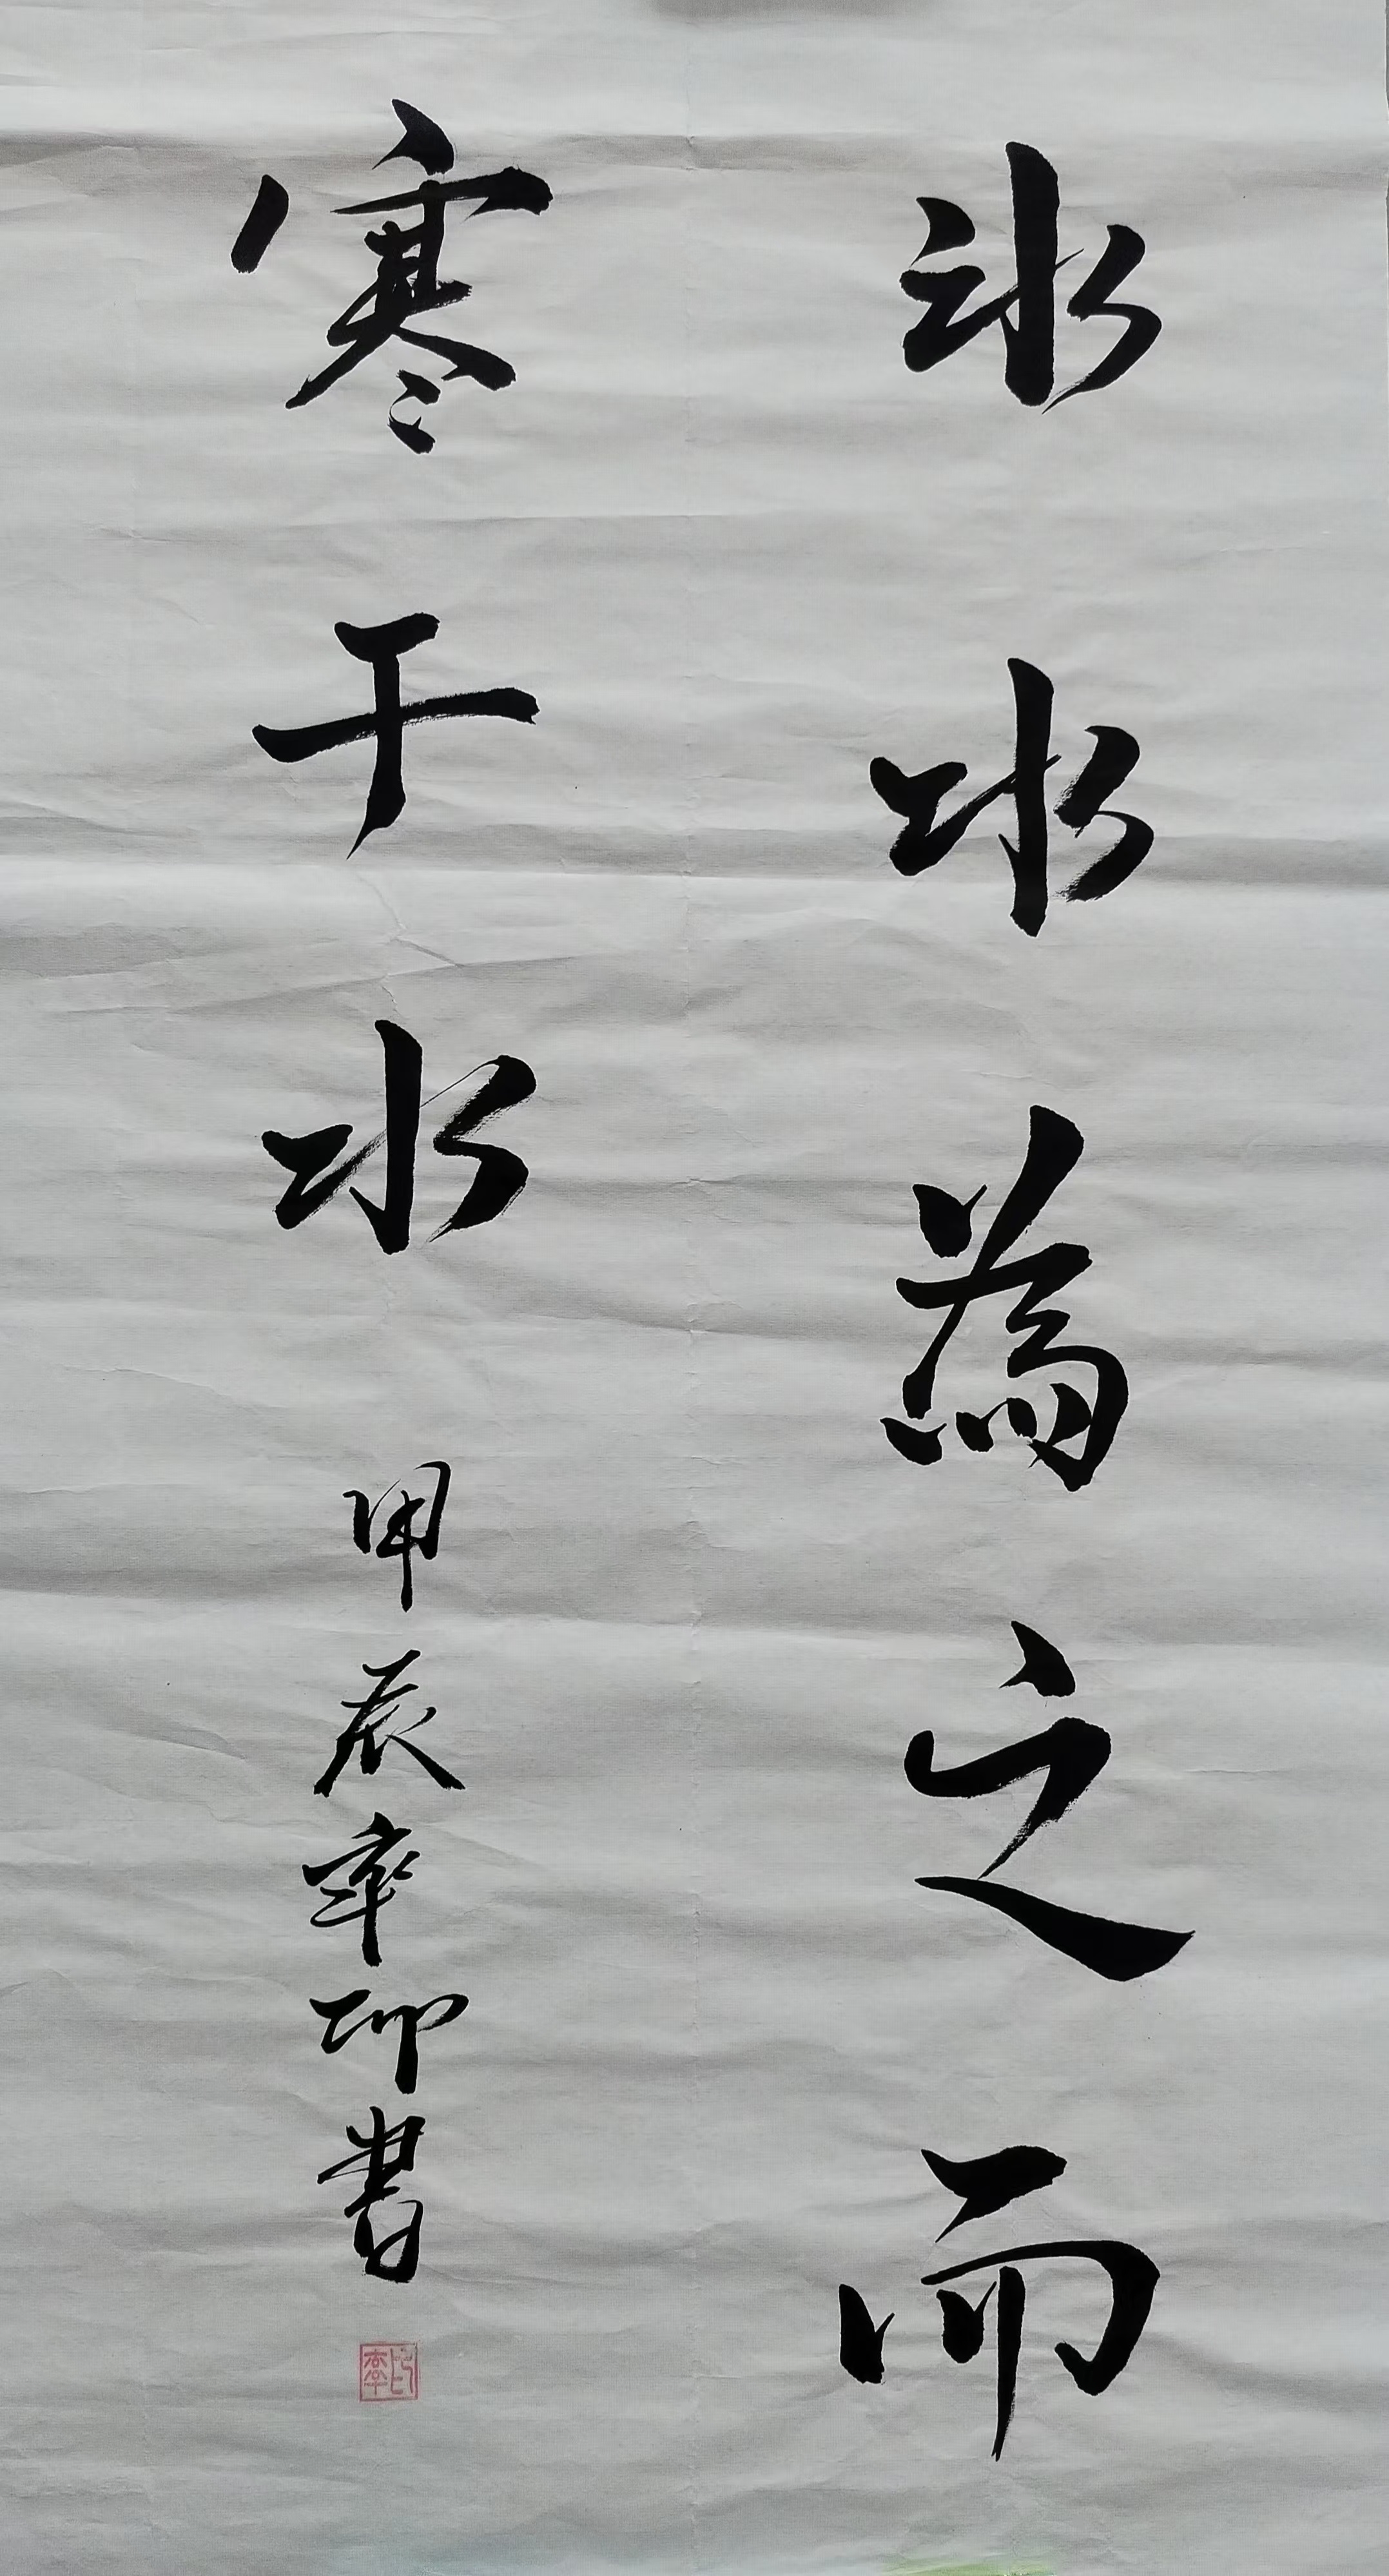 冰水為之而
寒于水
甲辰李印書